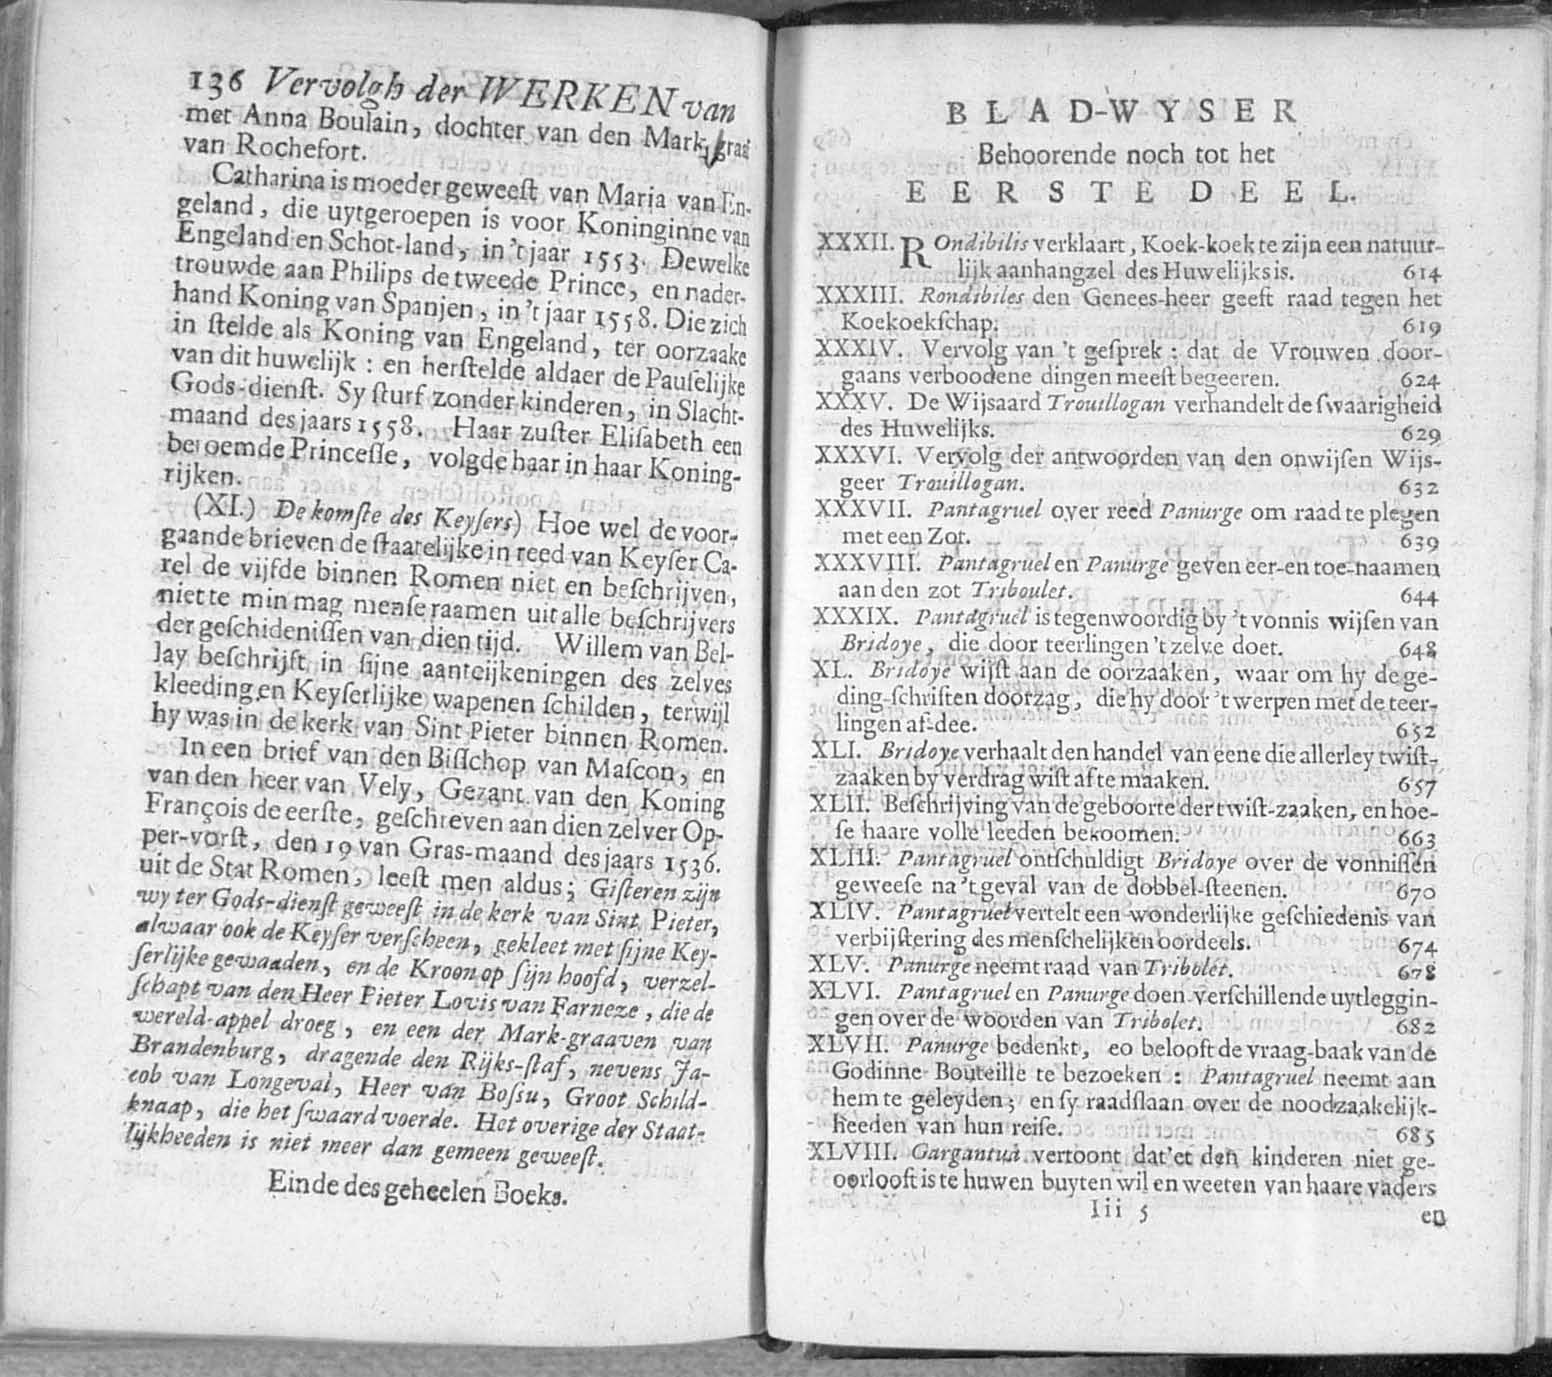 136 Vervolgh der WERKEN van
met Anna Boulain, dochter van den Mark-graaf
van Rochefort.
Catharina is moeder geweeſt van Maria van En-
geland, die uytgeroepen is voor Koninginne van
Engeland en Schot-land, in 't jaar 1553. Dewelke
trouwde aan Philips de tweede Prince, en nader-
hand Koning van Spanjen, in 't jaar 1558. Die zich
in ſtelde als Koning van Engeland, ter oorzaake
van dit huwelijk: en herſtelde aldaer de Pauſelijke
Gods-dienſt. Sy ſturf zonder kinderen, in Slacht-
maand des jaars 1558. Haar zuſter Eliſabeth een
beroemde Princeſſe, volgde haar in haar Koning-
rijken.
(XI.) De komſte des Keyſers) Hoe wel de voor-
gaande brieven de ſtaatelijke in reed van Keyſer Ca-
rel de vijfde binnen Romen niet en beſchrijven,
niet te min mag menſe raamen uit alle beſchrijvers
der geſchideniſſen van dien tijd. Willem van Bel-
lay beſchrijſt in ſijne aanteijkeningen des zelves
kleeding en Keyſerlijke wapenen ſchilden, terwijl
hy was in de kerk van Sint Pieter binnen Romen.
In een brief van den Biſſchop van Maſcon, en
van den heer van Vely, Gezant van den Koning
François de eerſte, geſchreven aan dien zelver Op-
per-vorſt, den 19 van Gras-maand des jaars 1536.
uit de Stat Romen, leeſt men aldus; Giſteren zijn
wy ter Gods-dienſt geweeſt in de kerk van Sint Pieter,
alwaar ook de Keyſer verſcheen, gekleet met ſijne Key-
ſerlijke gewaaden, en de Kroon op ſijn hoofd, verzel-
ſchapt van den Heer Pieter Lovis van Farneze, die de
wereld-appel droeg, en een der Mark-graaven van
Brandenburg, dragende den Rijks-ſtaf, nevens Ja-
cob van Longeval, Heer van Boſsu, Groot Schild-
knaap, die het ſwaard voerde. Het overige der Staat-
lijkheeden is niet meer dan gemeen geweeſt.
Einde des geheelen Boeks.
BLAD-WYSER
Behoorende noch tot het
EERSTE DEEL.
XXXII. ROndibilis verklaart, Koek-koek te zijn een natuur-
lijk aanhangzel des Huwelijks is. 614
XXXIII. Rondibiles den Genees-heer geeft raad tegen het
Koekoekſchap. 619
XXXIV. Vervolg van 't geſprek: dat de Vrouwen door-
gaans verboodene dingen meeſt begeeren. 624
XXXV. De Wijsaard Trouillogan verhandelt de ſwaarigheid
des Huwelijks. 629
XXXVI. Vervolg der antwoorden van den onwijſen Wijs-
geer Trouillogan. 632
XXXVII. Pantagruel over reed Panurge om raad te plegen
met een Zot. 639
XXXVIII. Pantagruel en Panurge geven eer-en toe-naamen
aan den zot Triboulet. 644
XXXIX. Pantagruel is tegenwoordig by 't vonnis wijſen van
Bridoye, die door teerlingen 't zelve doet. 648
XL. Bridoye wijſt aan de oorzaaken, waar om hy de ge-
ding-ſchriften doorzag, die hy door 't werpen met de teer-
lingen af-dee. 652
XLI. Bridoye verhaalt den handel van eene die allerley twiſt-
zaaken by verdrag wiſt af te maaken. 657
XLII. Beſchrijving van de geboorte der twiſt-zaaken, en hoe-
ſe haare volle leeden bekoomen. 663
XLIII. Pantagruel ontſchuldigt Bridoye over de vonniſſen
geweeſe na 't geval van de dobbel-ſteenen. 670
XLIV. Pantagruel vertelt een wonderlijke geſchiedenis van
verbijſtering des menſchelijken oordeels. 674
XLV. Panurge neemt raad van Tribolet. 678
XLVI. Pantagruel en Panurge doen verſchillende uytleggin-
gen over de woorden van Tribolet. 682
XLVII. Panurge bedenkt, eo belooft de vraag-baak van de
Godinne Bouteille te bezoeken: Pantagruel neemt aan
hem te geleyden; en ſy raadſlaan over de noodzaakelijk-
heeden van hun reiſe. 685
XLVIII. Gargantua vertoont dat'et den kinderen niet ge-
oorlooft is te huwen buyten wil en weeten van haare vaders
Iii 5 en